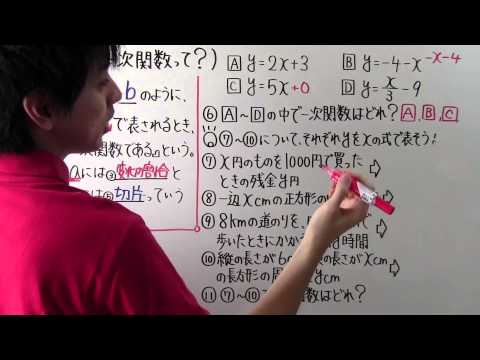 次関数って?)
bのように、
で表されるとき、
次関数であるという。
aには③変化の割合と
は⑤切片っていう
A y=2x+3
B y=-4-x -x-4
C y=5x+0
D y=x/3-9
⑥A~Dの中で一次関数はどれ? A,B,C
⑦~⑩について、それぞれyをxの式で表そう!
⑦x円のものを1000円で買った
ときの残金y円
⑧一辺xcmの正方形の
⑨8kmの道のりを、
歩いたときにかか 時間
⑩縦の長さが6 の長さがxcm
の長方形の周 ycm
⑪⑦~⑩ 関数はどれ?